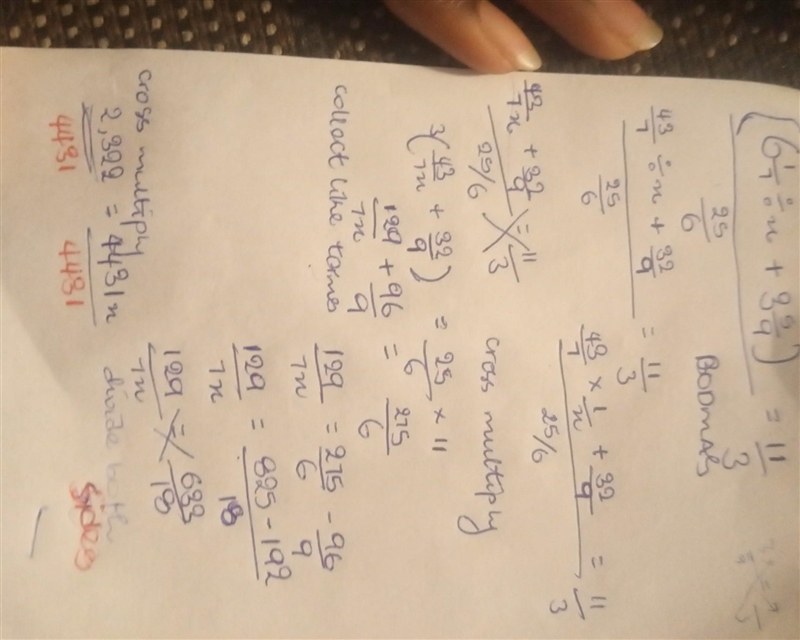 (6 1/7 ÷ x + 3 2/9) / 25/6 = 11/3
BODMAS
43/7 ÷ x + 32/9 / 25/6 = 11/3
43/7 × 1/x + 32/9 / 25/6 = 11/3
43/7x + 32/9 / 25/6 = 11/3
cross multiply
3(43/7x + 32/9) = 25/6 × 11
129/7x + 96/9 = 275/6
collect like terms
129/7x = 275/6 - 96/9
129/7x = 825 - 192 / 18
129/7x = 633/18
cross multiply
2,322 = 4431x
4431 4431
divide both
sides